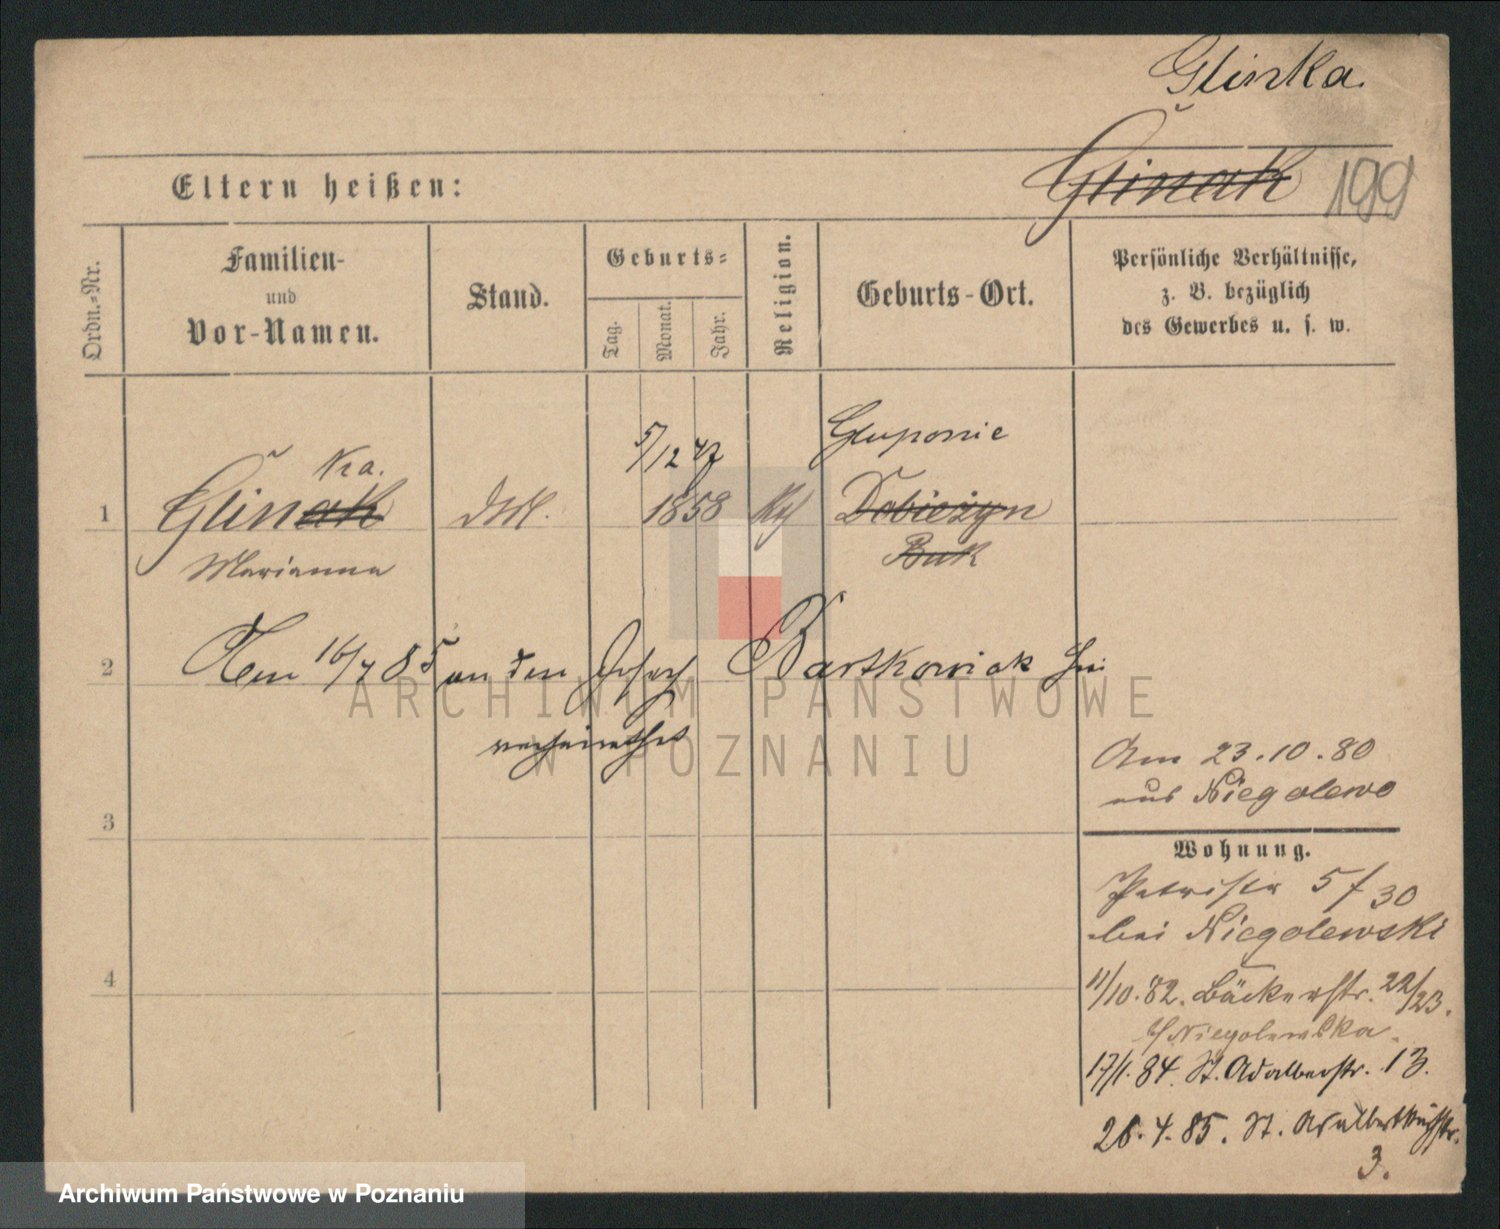 Glinka.
Glinak 199
Eltern heißen:
Ordn.-Nr.
Familien-
und
Vor-Namen.
Stand.
Geburts-
Tag.
Monat.
Jahr.
Religion.
Geburts-Ort.
Persönliche Verhältnisse,
z. B. bezüglich
des Gewerbes u. s. w.
5/12 47 Gluponie
ka.
1 Glinak 1858 Dobiezyn
Marianna Buk
2 Am 16/7 85 an den Josef Bartkowiak hier
verheirathet
ARCHIWUM PAŃSTWOWE
W POZNANIU
Am 23.10.80
aus Niegolewo
3
Wohnung.
Petristr 5 f 30
bei Niegolewski
4
11/10.82. Bäckerstr. 22/23.
Niegolewska.
17/1.84. St. Adalbertstr. 13.
28.4.85. St. Adalbertkirchstr.
3.
Archiwum Państwowe w Poznaniu